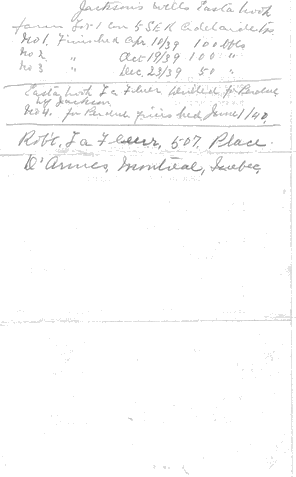 Jackson's wells Easta Woth
farm Lot 1 Con 5 SER Adelaide Tp.
No 1. Finished Apr. 10/39 100 bbls
No 2 " Oct 19/39 100 "
No 3 " Dec. 23/39 50 "
Easta Woth LaFleur drilled for Perdue
by Jackson
No 4. for Perdue finished, June 1/40
Robt. LaFleur, 507, Place
D'Armes, Montreal, Quebec,